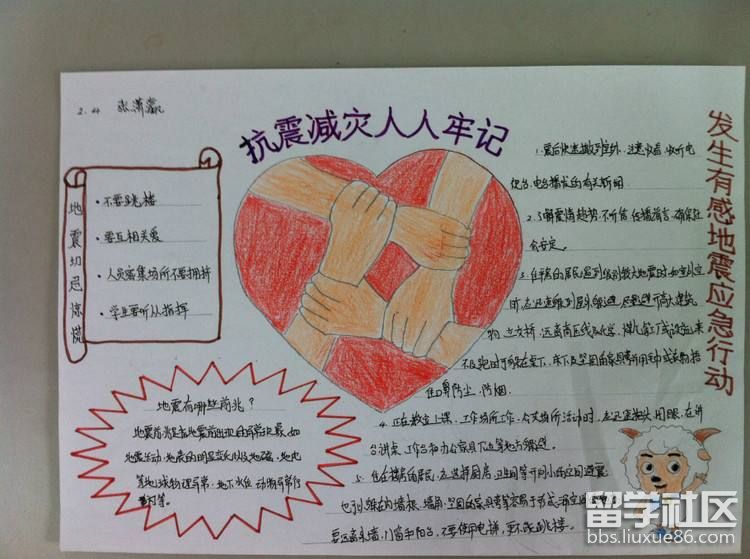 2.4 张潇
抗震减灾人人牢记
地震切忌惊慌
不要跳楼
要互相关爱
人员密集场所不要拥挤
学生要听从指挥
地震有哪些前兆?
地震前兆是指地震前出现的异常现象,如
地震活动、地表的明显变化以及地磁、地电
等地球物理异常、地下水位、动物异常行
为等。
发生有感地震应急行动
1.震后快速撤到室外,注意收看、收听电
视台、电台播放的有关新闻
2.了解震情趋势,不听信、传播谣言,确保社
会安定。
3.住平房的居民遇到级别较大地震时,如室外空
旷,应迅速跑到屋外躲避,尽量避开高大建筑
物、立交桥,远离高压线及化学、煤气等工厂或设施;来
不及跑时可躲在桌下、床下及坚固的家具旁,并用毛巾或衣物捂
住口鼻防尘、防烟。
4.正在教室上课、工作场所工作、公共场所活动时,应迅速抱头、闭眼,在讲
台、课桌、工作台和办公家具下边等地方躲避。
5.住在楼房的居民,应选择厨房、卫生间等开间小的空间避震;
也可以躲在内墙根、墙角、坚固的家具旁等容易于形成三角空间
要远离外墙、门窗和阳台,不要使用电梯,更不能跳楼。
留学社区
bbs.liuxue86.com